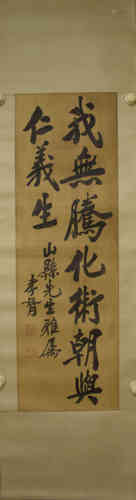 我無騰化術朝與
仁義生
山縣先生雅屬
李胥